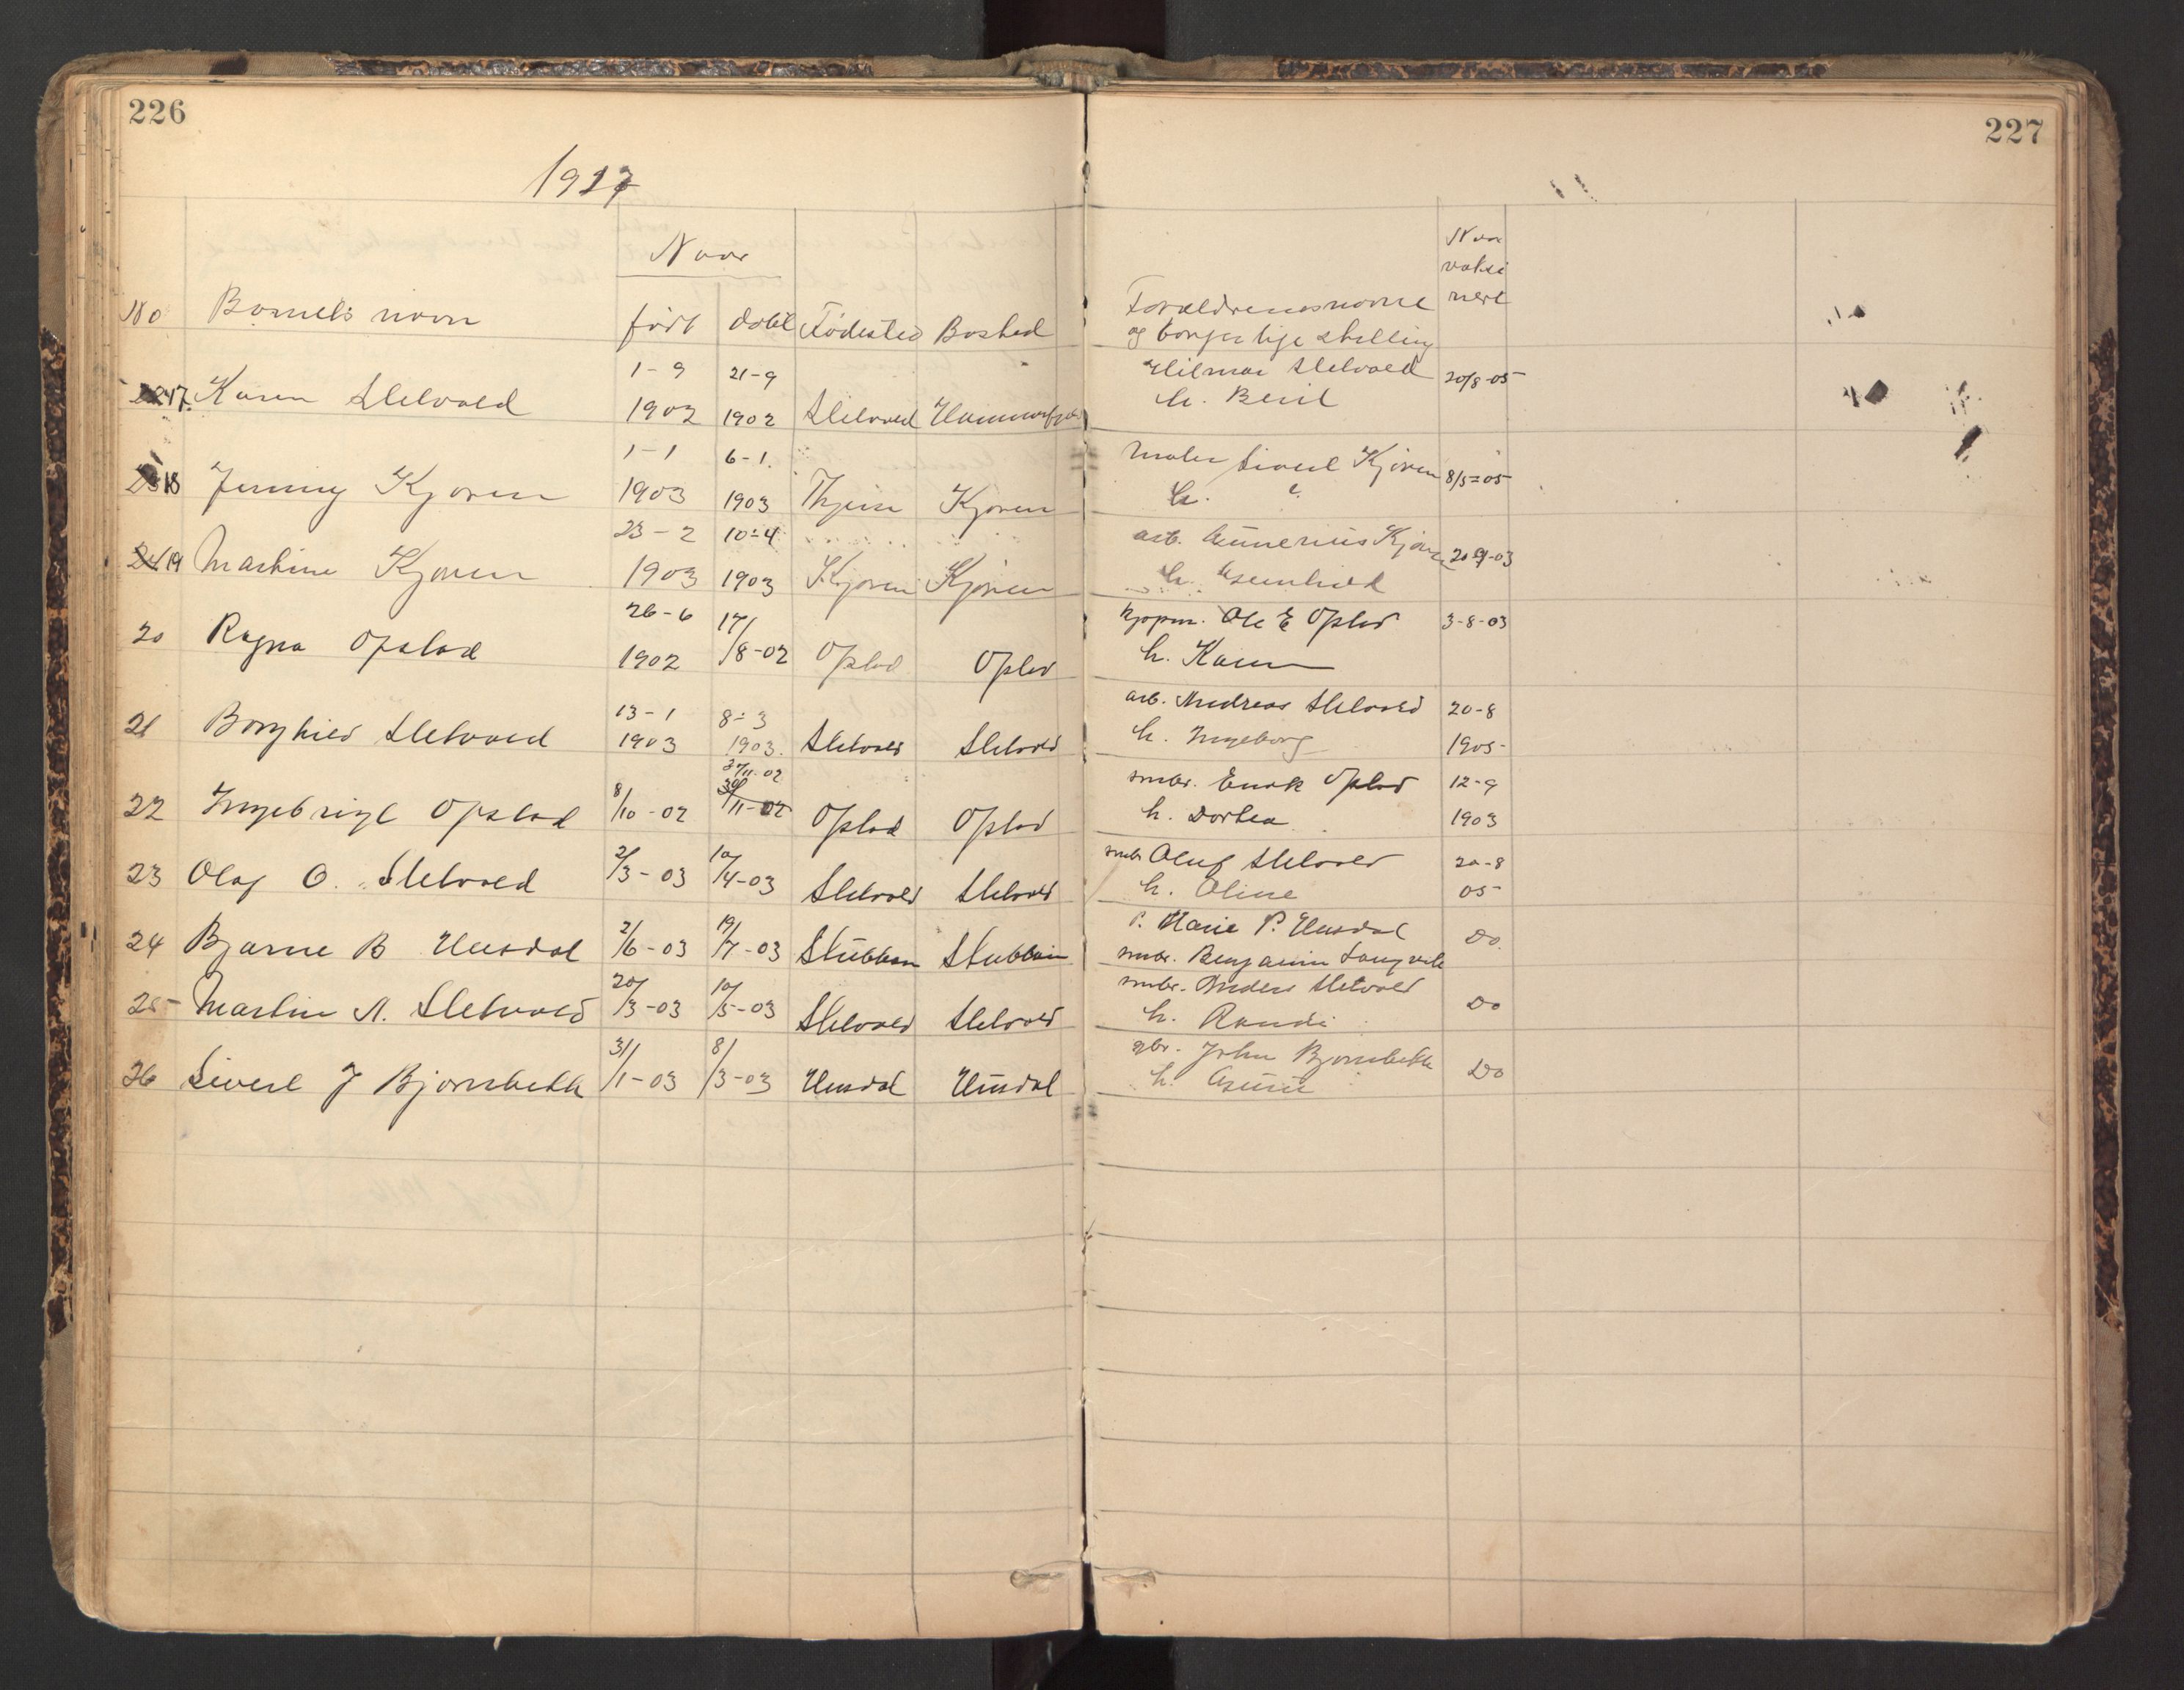 226
227
1917
Naar
Naar
vaksi
nert
No Barnets navn født døbt Fødested Bosted Forældrenes navne
og borgerlige stilling
17. Karen Sletvold 1-9 1902 21-9 1902 Sletvold Hilmar Sletvold 20/8-05
h. Beret
18 Jenny Kjøren 1-1 1903 6-1. 1903 Kjøren maler Sivert Kjøren 8/5=05
h. ?
19 Martine Kjøren 23-2 1903 10-4 1903 Kjøren Kjøren arb. Gunerius Kjøren 20-9-03
h. Gunhild
20 Ragna Opstad 26-6 1902 17/8-02 Opstad Opstad kjøpm. Ole E Opstad 3-8-03
h. Karen
21 Borghild Sletvold 13-1 1903 8-3 1903. Sletvold Sletvold arb. Andreas Sletvold 20-8
h. Ingeborg 1905
22 Ingebrigt Opstad 8/10-02 30/11-02 Opstad Opstad smbr. Enok Opstad 12-9
h. Dortea 1903
23 Olaf O. Sletvold 2/3-03 10/4-03 Sletvold Sletvold smbr Oluf Sletvold 20-8
h. Oline 05
24 Bjarne B Uusdal 2/6-03 19/7-03 Stubban Stubban P. Marie P. Uusdal Do.
smbr. Benjamin
25 Martin A. Sletvold 20/3-03 10/5-03 Sletvold Sletvold smbr. Anders Sletvold Do
h. Randi
26 Sivert J Bjørnbekk 31/1-03 8/3-03 Uusdal Uusdal gbr. John Bjørnbekk Do
h. Gurine